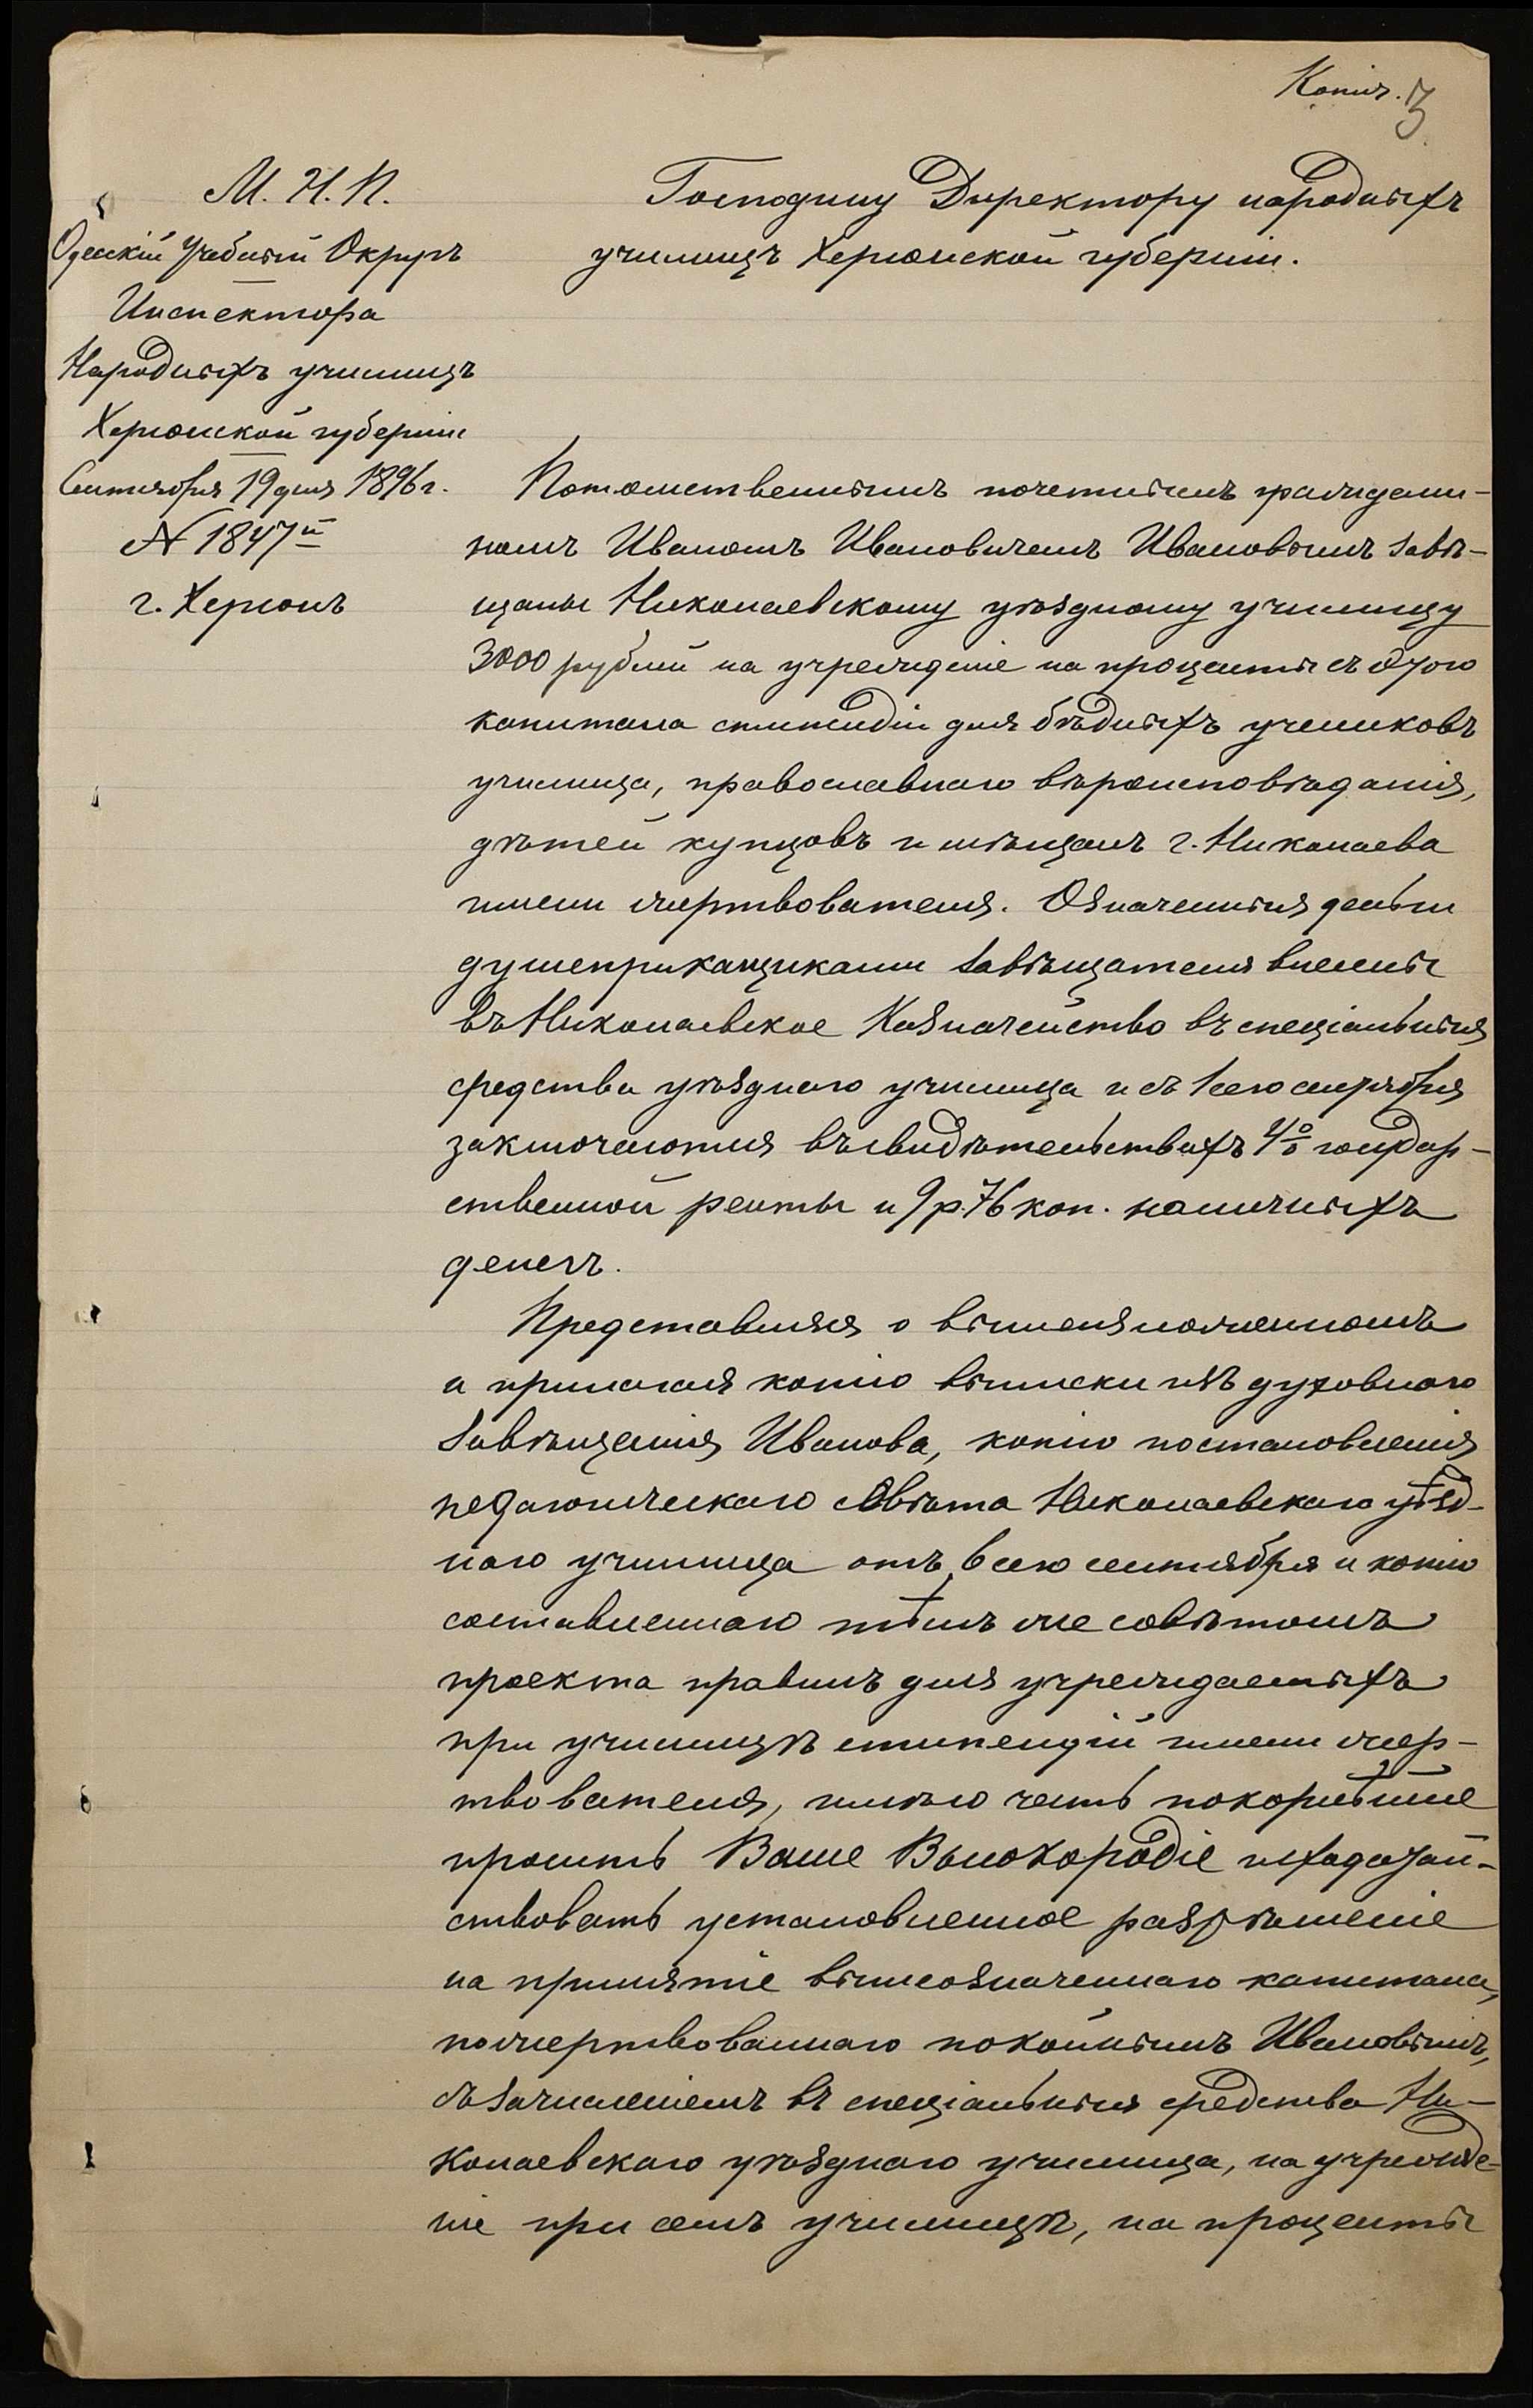 Копія. 3
М. Н. П.
Одесскій Учебный Округъ
Инспектора
Народныхъ училищъ
Херсонской губерніи
Сентября 19 дня 1896 г.
№ 1847й
г. Херсонъ
Господину Директору народныхъ
училищъ Херсонской губерніи.
Потомственнымъ почетнымъ граждани-
номъ Иваномъ Ивановичемъ Ивановымъ завѣ-
щаны Николаевскому уѣздному училищу
3000 рублей на учрежденіе на проценты съ этого
капитала стипендіи для бѣдныхъ учениковъ
училища, православнаго вѣроисповѣданія,
дѣтей купцовъ и мѣщанъ г. Николаева
имени жертвователя. Означенныя деньги
душеприкащиками завѣщателя внесены
въ Николаевское Казначейство въ спеціальныя
средства уѣзднаго училища и съ 1сего сентября
заключаются въ свидѣтельствахъ 4% государ-
ственной ренты и 9 р. 76 коп. наличныхъ
денегъ.
Представляя о вышеизложенномъ
и прилагая копію выписки изъ духовнаго
завѣщанія Иванова, копію постановленія
педагогическаго совѣта Николаевскаго уѣзд-
наго училища отъ 6 сего сентября и копію
составленнаго тѣмъ же совѣтомъ
проекта правилъ для учреждаемыхъ
при училищѣ стипендій имени жер-
твователя, имѣю честь покорнѣйше
просить Ваше Высокородіе исходатай-
ствовать установленное разрѣшеніе
на принятіе вышеозначеннаго капитала,
пожертвованнаго покойнымъ Ивановымъ,
съ зачисленіемъ въ спеціальныя средства Ни-
колаевскаго уѣзднаго училища, на учрежде-
ніе при семъ училищѣ, на проценты